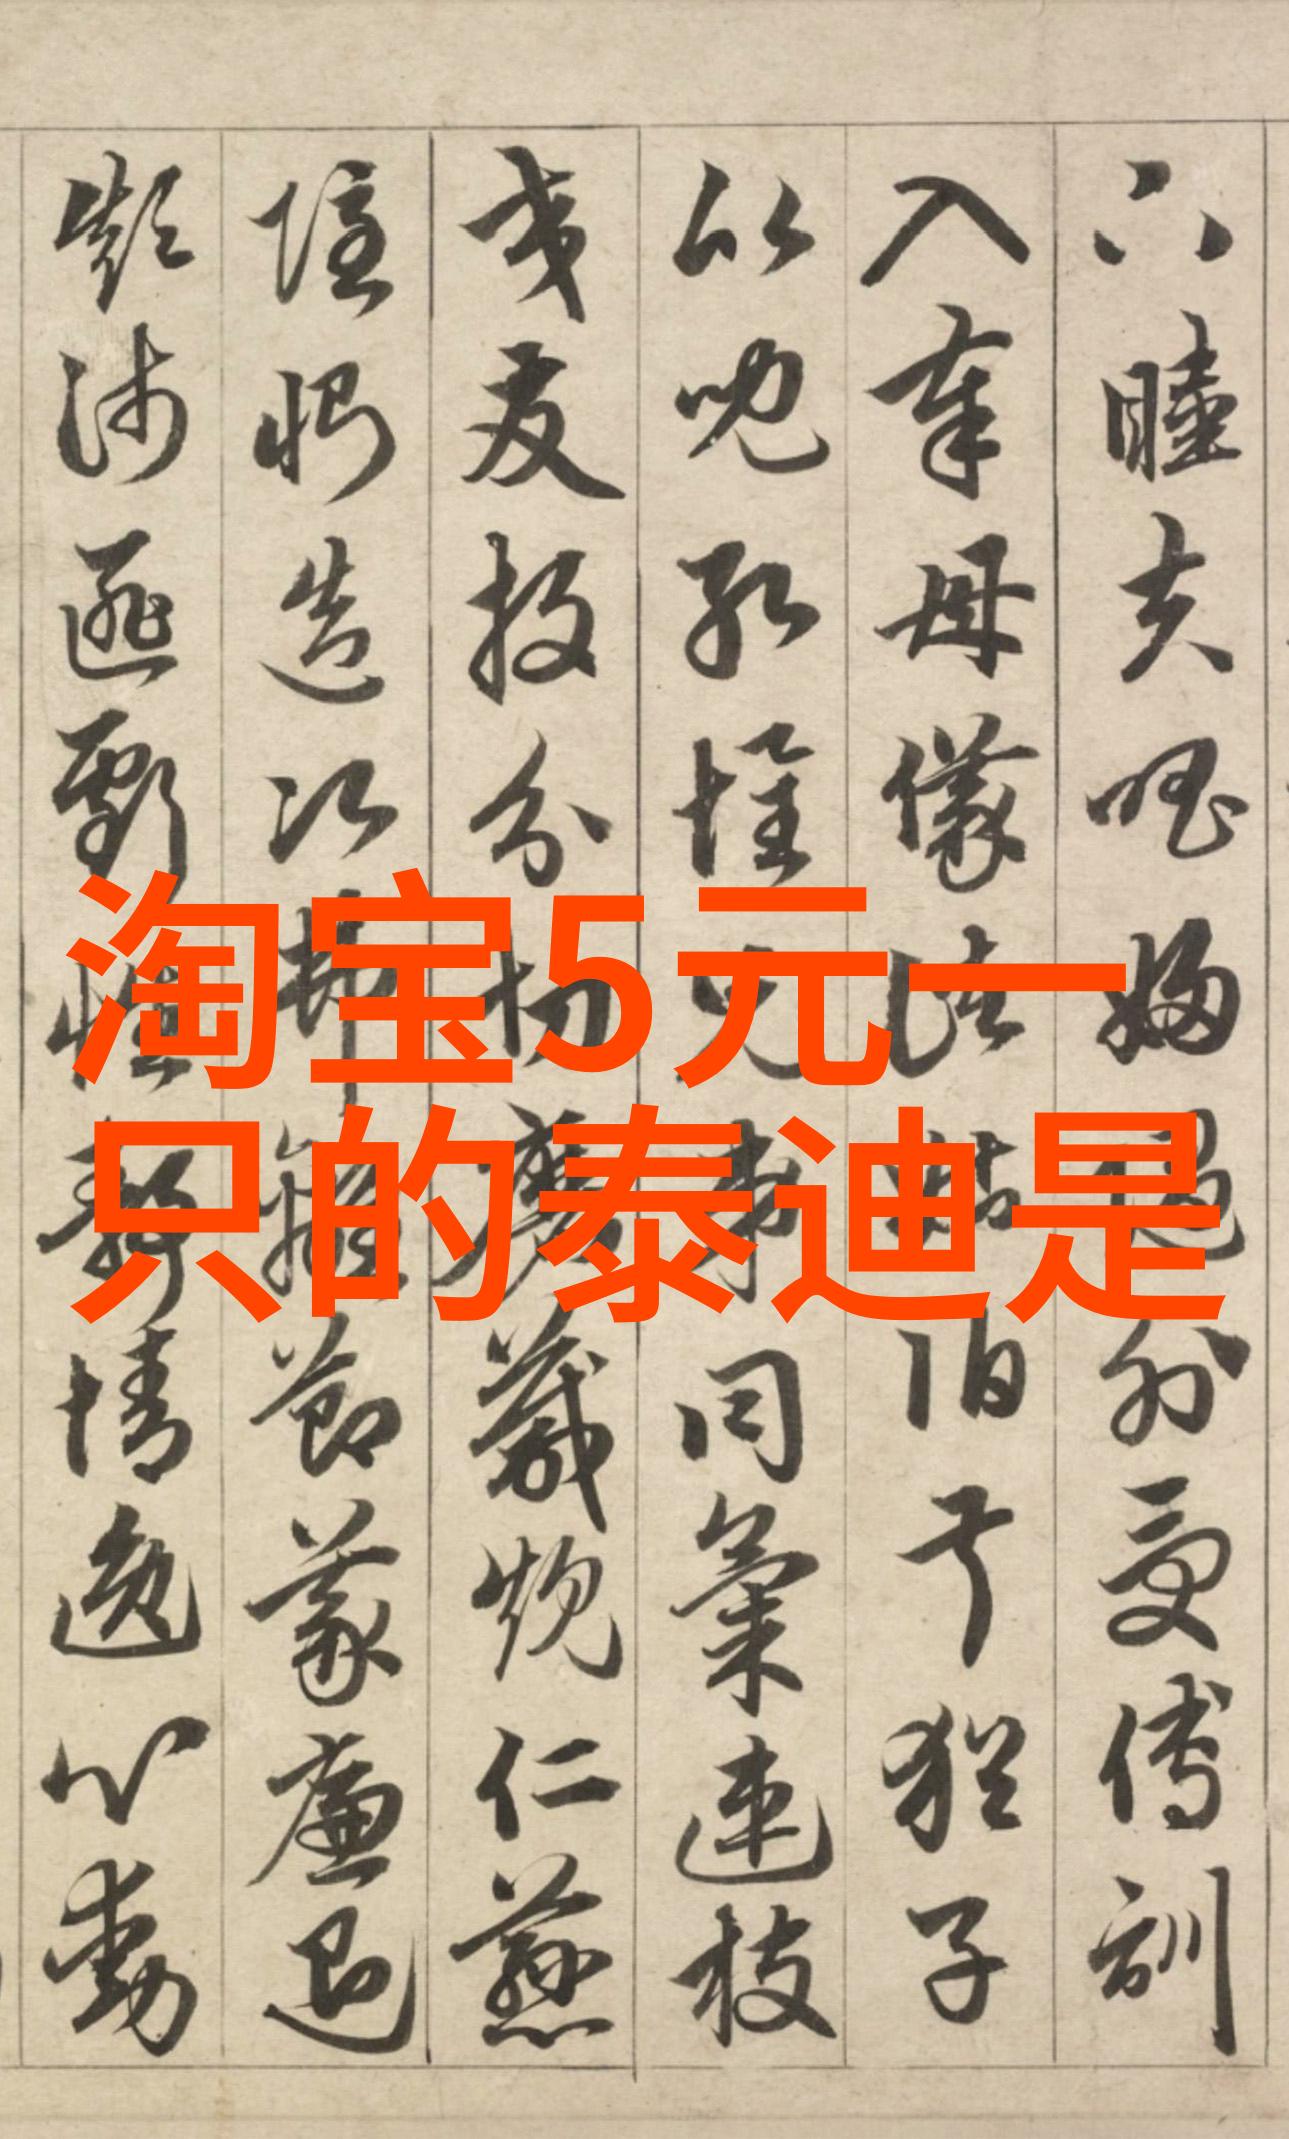 淘宝5元一
只的泰迪是
下睦夫唱婦隨外受傅訓
入奉母儀諸姑伯叔猶子
比兒孔懷兄弟同氣連枝
交友投分切磨箴規仁慈
隱惻造次弗離節義廉退
顛沛匪虧性靜情逸心動